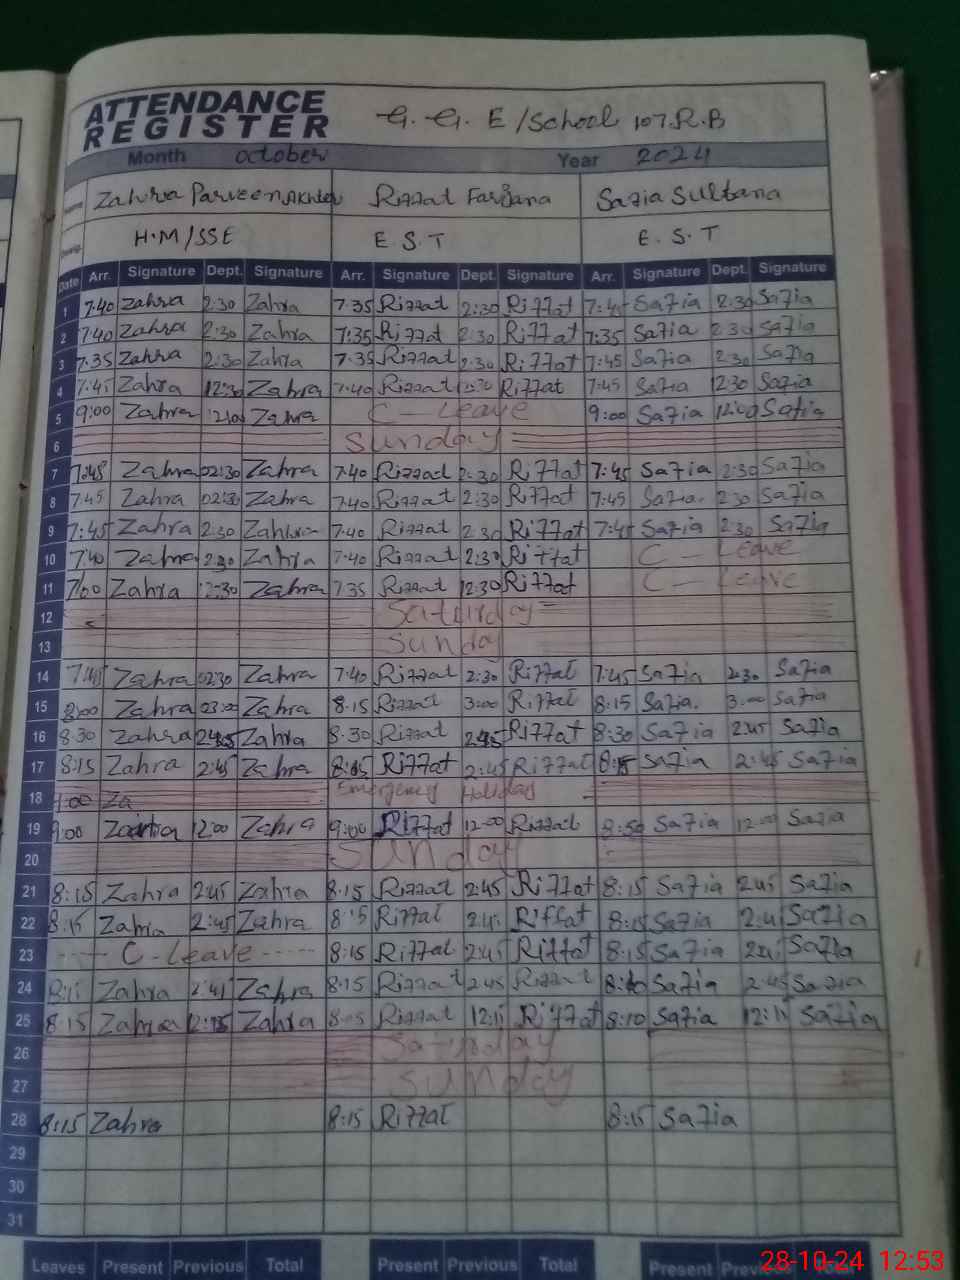 ATTENDANCE
REGISTER
G. G. E /School 107.R.B
Month October Year 2024
Name Zahra Parveen Akhter Riffat Farzana Safia Sultana
Desig. H.M/SSE E.S.T E.S.T
Date Arr. Signature Dept. Signature Arr. Signature Dept. Signature Arr. Signature Dept. Signature
1 7:40 Zahra 2:30 Zahra 7:35 Riffat 2:30 Riffat 7:45 Safia 2:30 Safia
2 7:40 Zahra 2:30 Zahra 7:35 Riffat 2:30 Riffat 7:35 Safia 2:30 Safia
3 7:35 Zahra 2:30 Zahra 7:35 Riffat 2:30 Riffat 7:45 Safia 2:30 Safia
4 7:45 Zahra 12:30 Zahra 7:40 Riffat 12:30 Riffat 7:45 Safia 12:30 Safia
5 9:00 Zahra 12:00 Zahra C - Leave 9:00 Safia 12:00 Safia
6 Sunday
7 7:45 Zahra 02:30 Zahra 7:40 Riffat 2:30 Riffat 7:45 Safia 2:30 Safia
8 7:45 Zahra 02:30 Zahra 7:40 Riffat 2:30 Riffat 7:45 Safia 2:30 Safia
9 7:45 Zahra 2:30 Zahra 7:40 Riffat 2:30 Riffat 7:45 Safia 2:30 Safia
10 7:40 Zahra 2:30 Zahra 7:40 Riffat 2:30 Riffat C - Leave
11 7:00 Zahra 12:30 Zahra 7:35 Riffat 12:30 Riffat C - Leave
12 Saturday
13 Sunday
14 7:45 Zahra 02:30 Zahra 7:40 Riffat 2:30 Riffat 7:45 Safia 2:30 Safia
15 8:00 Zahra 03:00 Zahra 8:15 Riffat 3:00 Riffat 8:15 Safia 3:00 Safia
16 8:30 Zahra 2:45 Zahra 8:30 Riffat 2:45 Riffat 8:30 Safia 2:45 Safia
17 8:15 Zahra 2:45 Zahra 8:15 Riffat 2:45 Riffat 8:15 Safia 2:45 Safia
18 9:00 Za Emergency Holiday
19 9:00 Zahra 12:00 Zahra 9:00 Riffat 12:00 Riffat 8:50 Safia 12:00 Safia
20 Sunday
21 8:15 Zahra 2:45 Zahra 8:15 Riffat 2:45 Riffat 8:15 Safia 2:45 Safia
22 8:15 Zahra 2:45 Zahra 8:15 Riffat 2:45 Riffat 8:15 Safia 2:45 Safia
23 C - Leave 8:15 Riffat 2:45 Riffat 8:15 Safia 2:45 Safia
24 8:15 Zahra 2:45 Zahra 8:15 Riffat 2:45 Riffat 8:10 Safia 2:45 Safia
25 8:15 Zahra 12:15 Zahra Riffat 12:15 Riffat 8:10 Safia 12:15 Safia
26 Saturday
27 Sunday
28 8:15 Zahra 8:15 Riffat 8:15 Safia
29
30
31
Leaves Present Previous Total Present Previous Total Present Previous Total
28-10-24 12:53